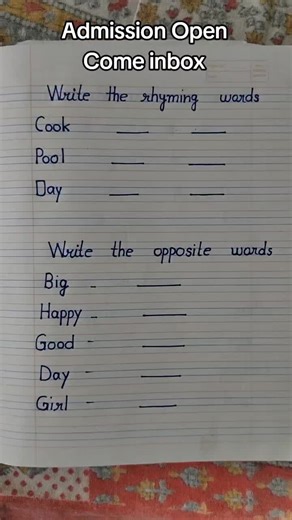 Admission Open
Come inbox
Write the rhyming words
Cook ___ ___
Pool ___ ___
Day ___ ___
Write the opposite words
Big - ___
Happy - ___
Good - ___
Day - ___
Girl - ___